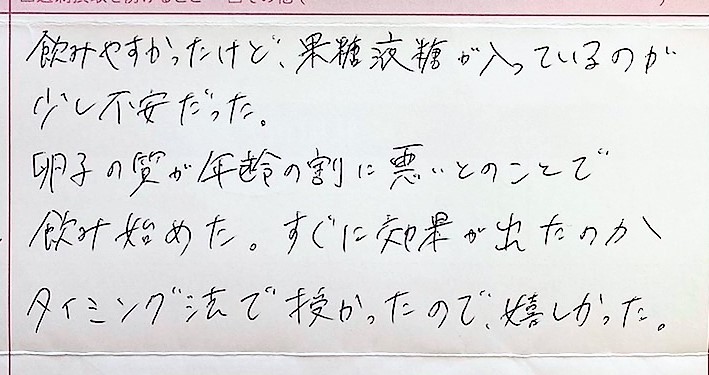 飲みやすかったけど、果糖液糖が入っているのが
少し不安だった。
卵子の質が年齢の割に悪いとのことで
飲み始めた。すぐに効果が出たのか、
タイミング法で授かったので、嬉しかった。